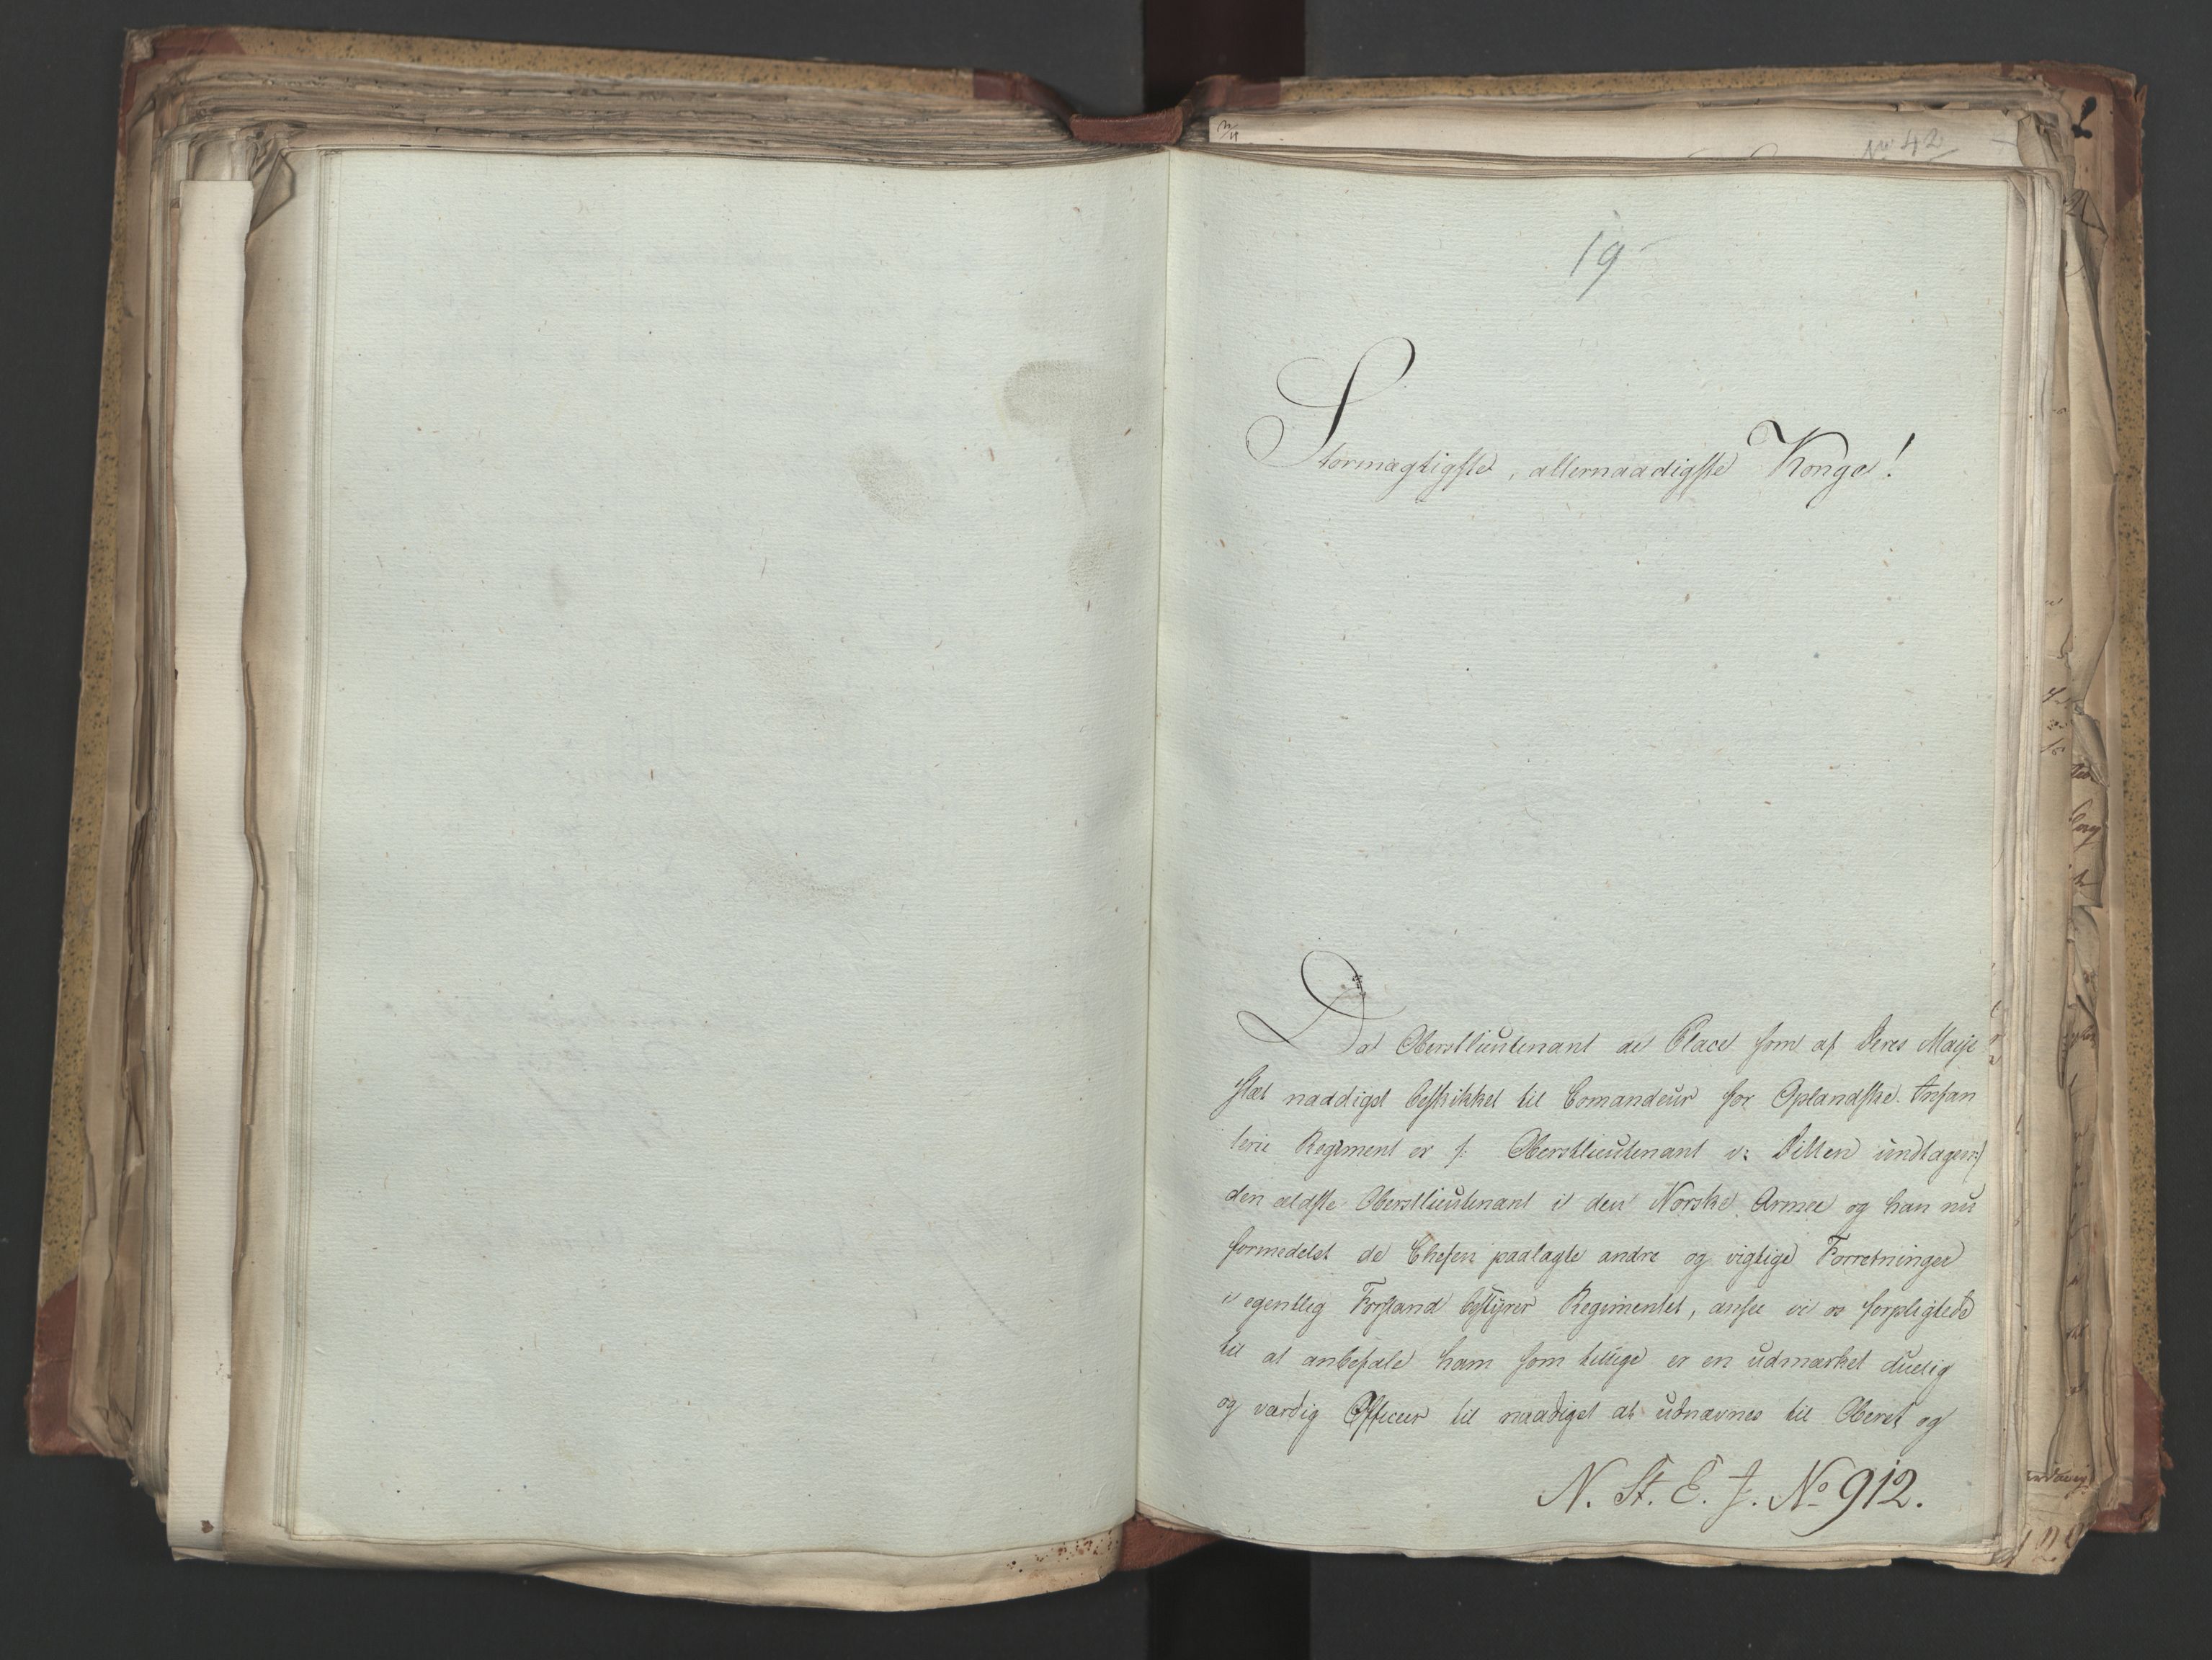 No 42
19
Stormægtigste, allernaadigste Konge!
Da Oberstlieutenant de Place som af Deres Maje
stæt naadigst beskikket til Comandeur for Oplandske Infan
terie Regiment er /: Oberstlieutenant v: Ditten undtagen :/
den ældste Oberstlieutenant i den Norske Armee og han nu
formedelst de Chefen paalagte andre og vigtige Forretninger
i egentlig Forstand bestyrer Regimentet, ansee vi os forpligtede
til at anbefale ham som tillige er en udmærket duelig
og værdig Officeer til naadigst at udnævnes til Oberst og
N. St. E. J. No 912.